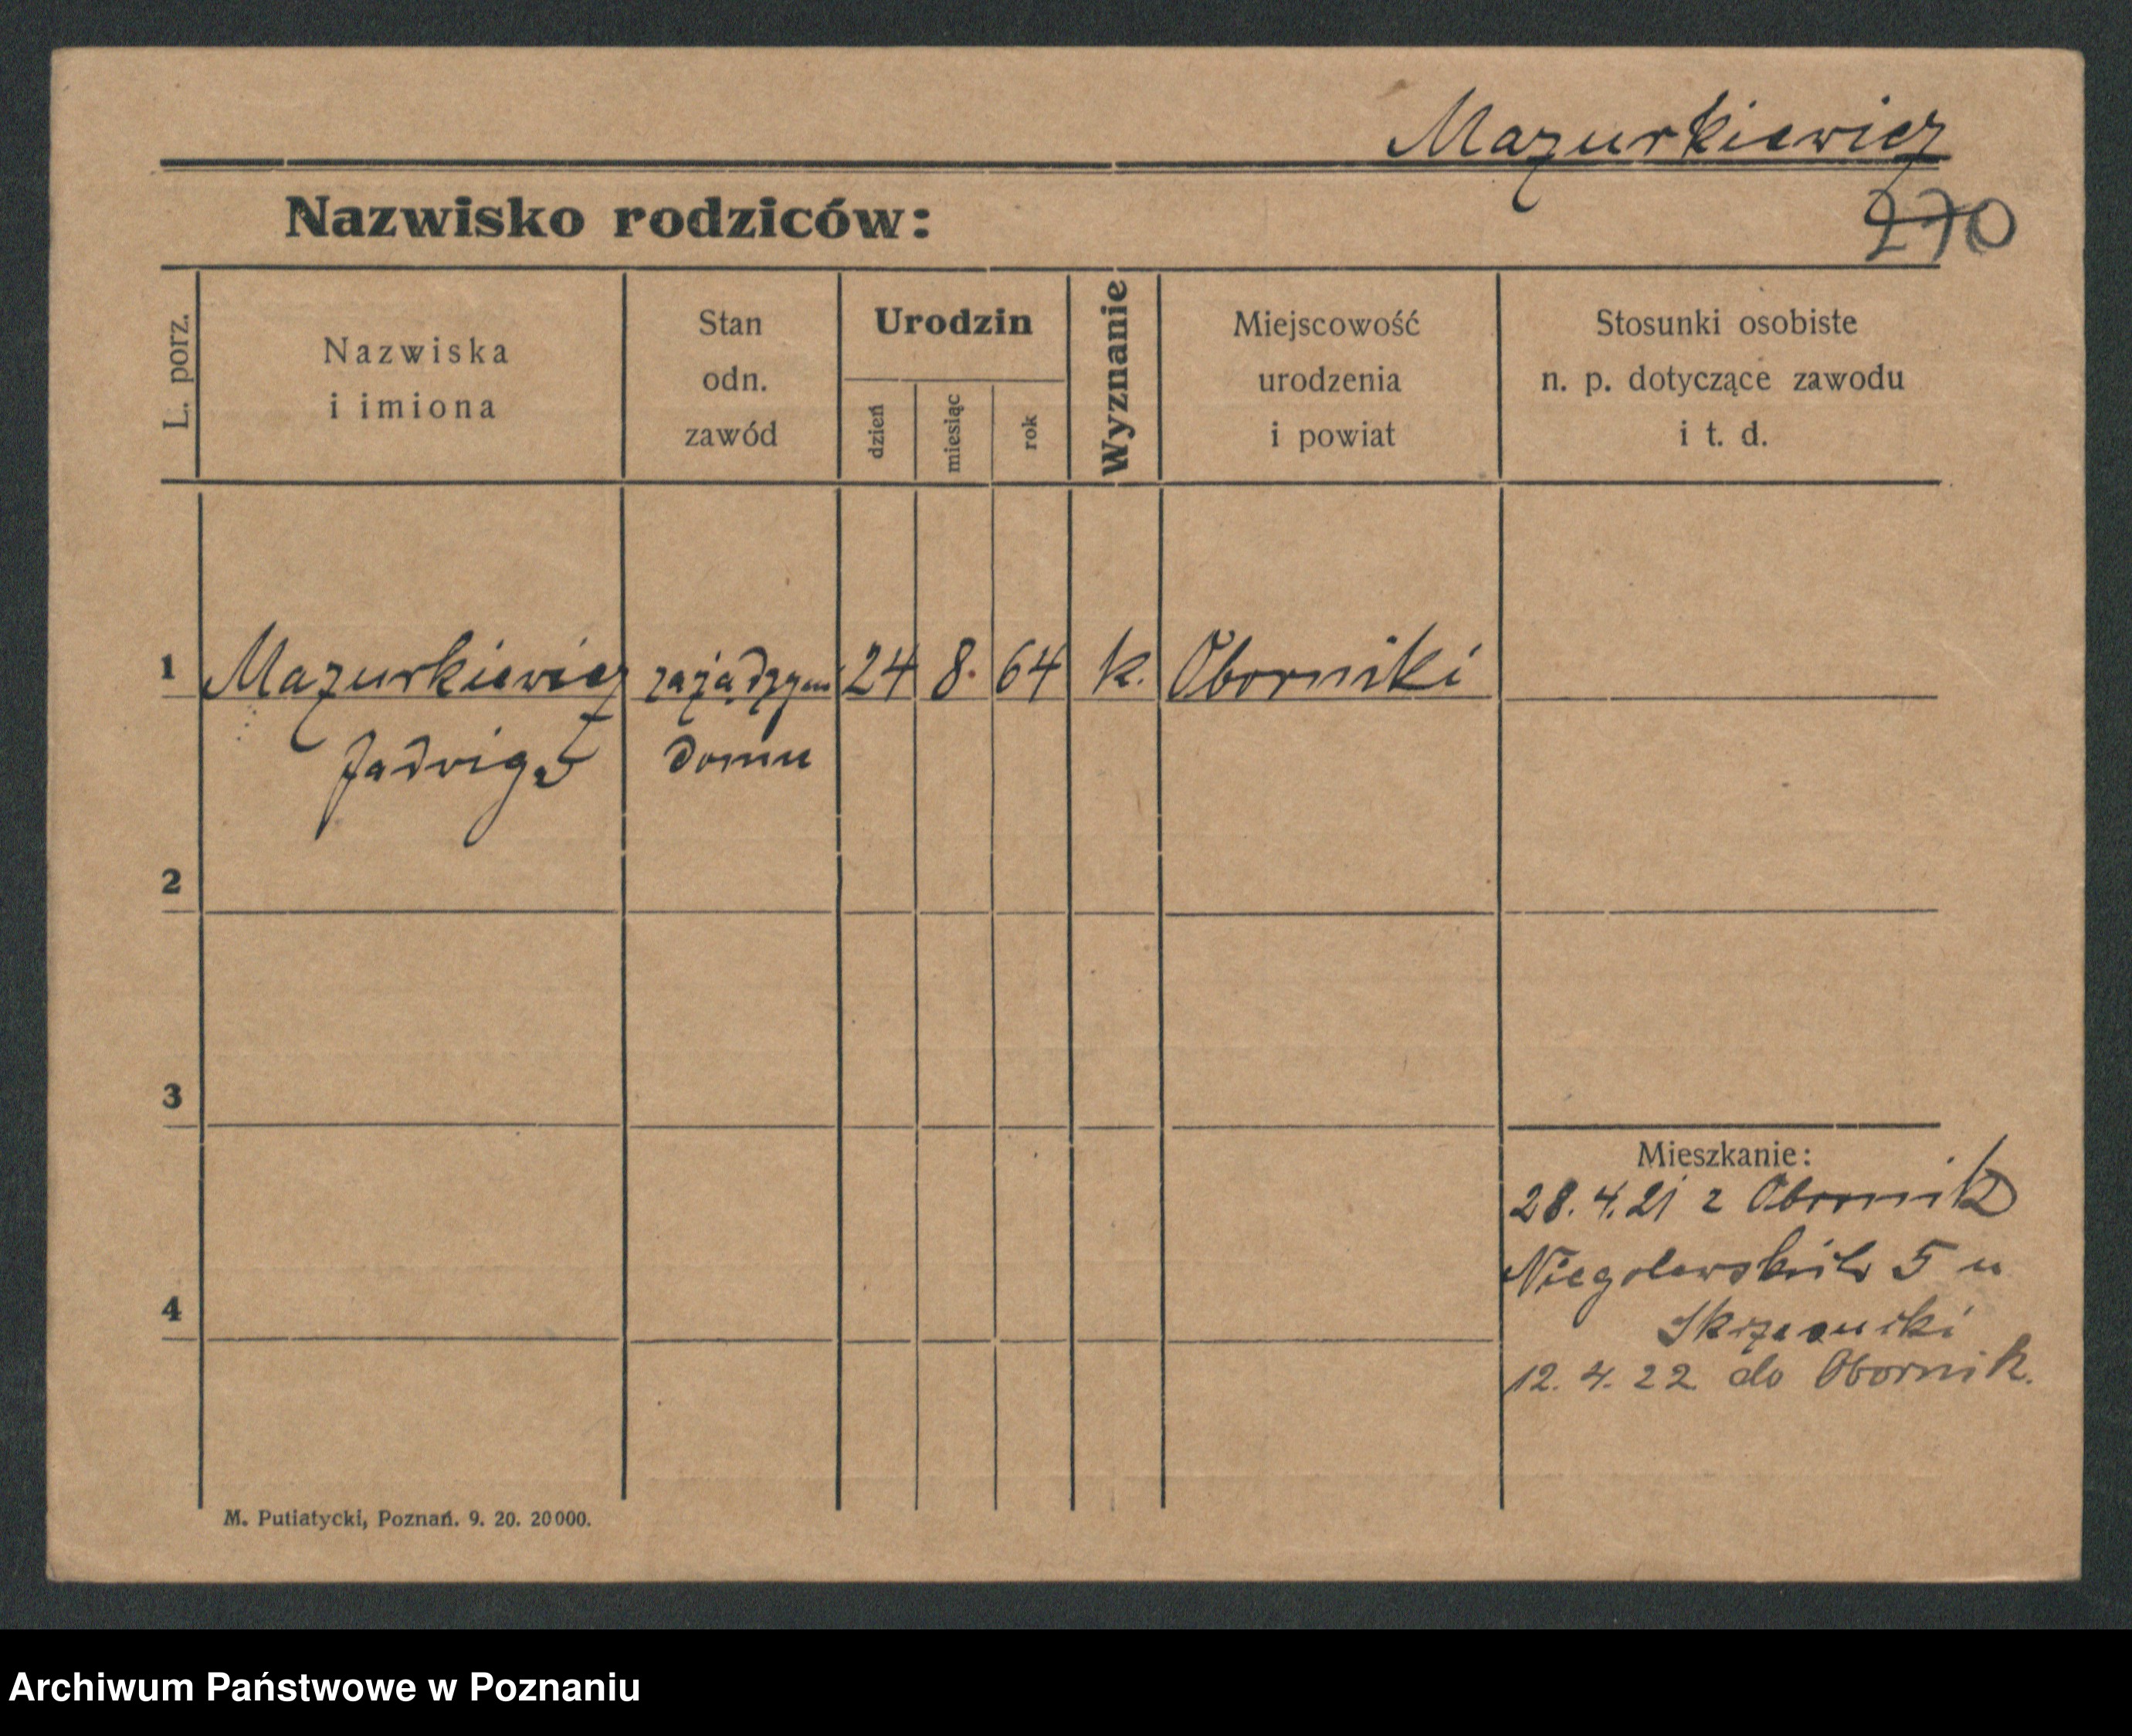 Mazurkiewicz
Nazwisko rodziców:
270
L. porz.
Nazwiska
i imiona
Stan
odn.
zawód
Urodzin
dzień
miesiąc
rok
Wyznanie
Miejscowość
urodzenia
i powiat
Stosunki osobiste
n. p. dotyczące zawodu
i t. d.
1 Mazurkiewicz 24 8. 64 k. Oborniki
Jadwiga domu
2
3
4
Mieszkanie:
28. 4. 21 z Obornik
5 u
12. 4. 22 do Obornik.
M. Putiatycki, Poznań. 9. 20. 20000.
Archiwum Państwowe w Poznaniu